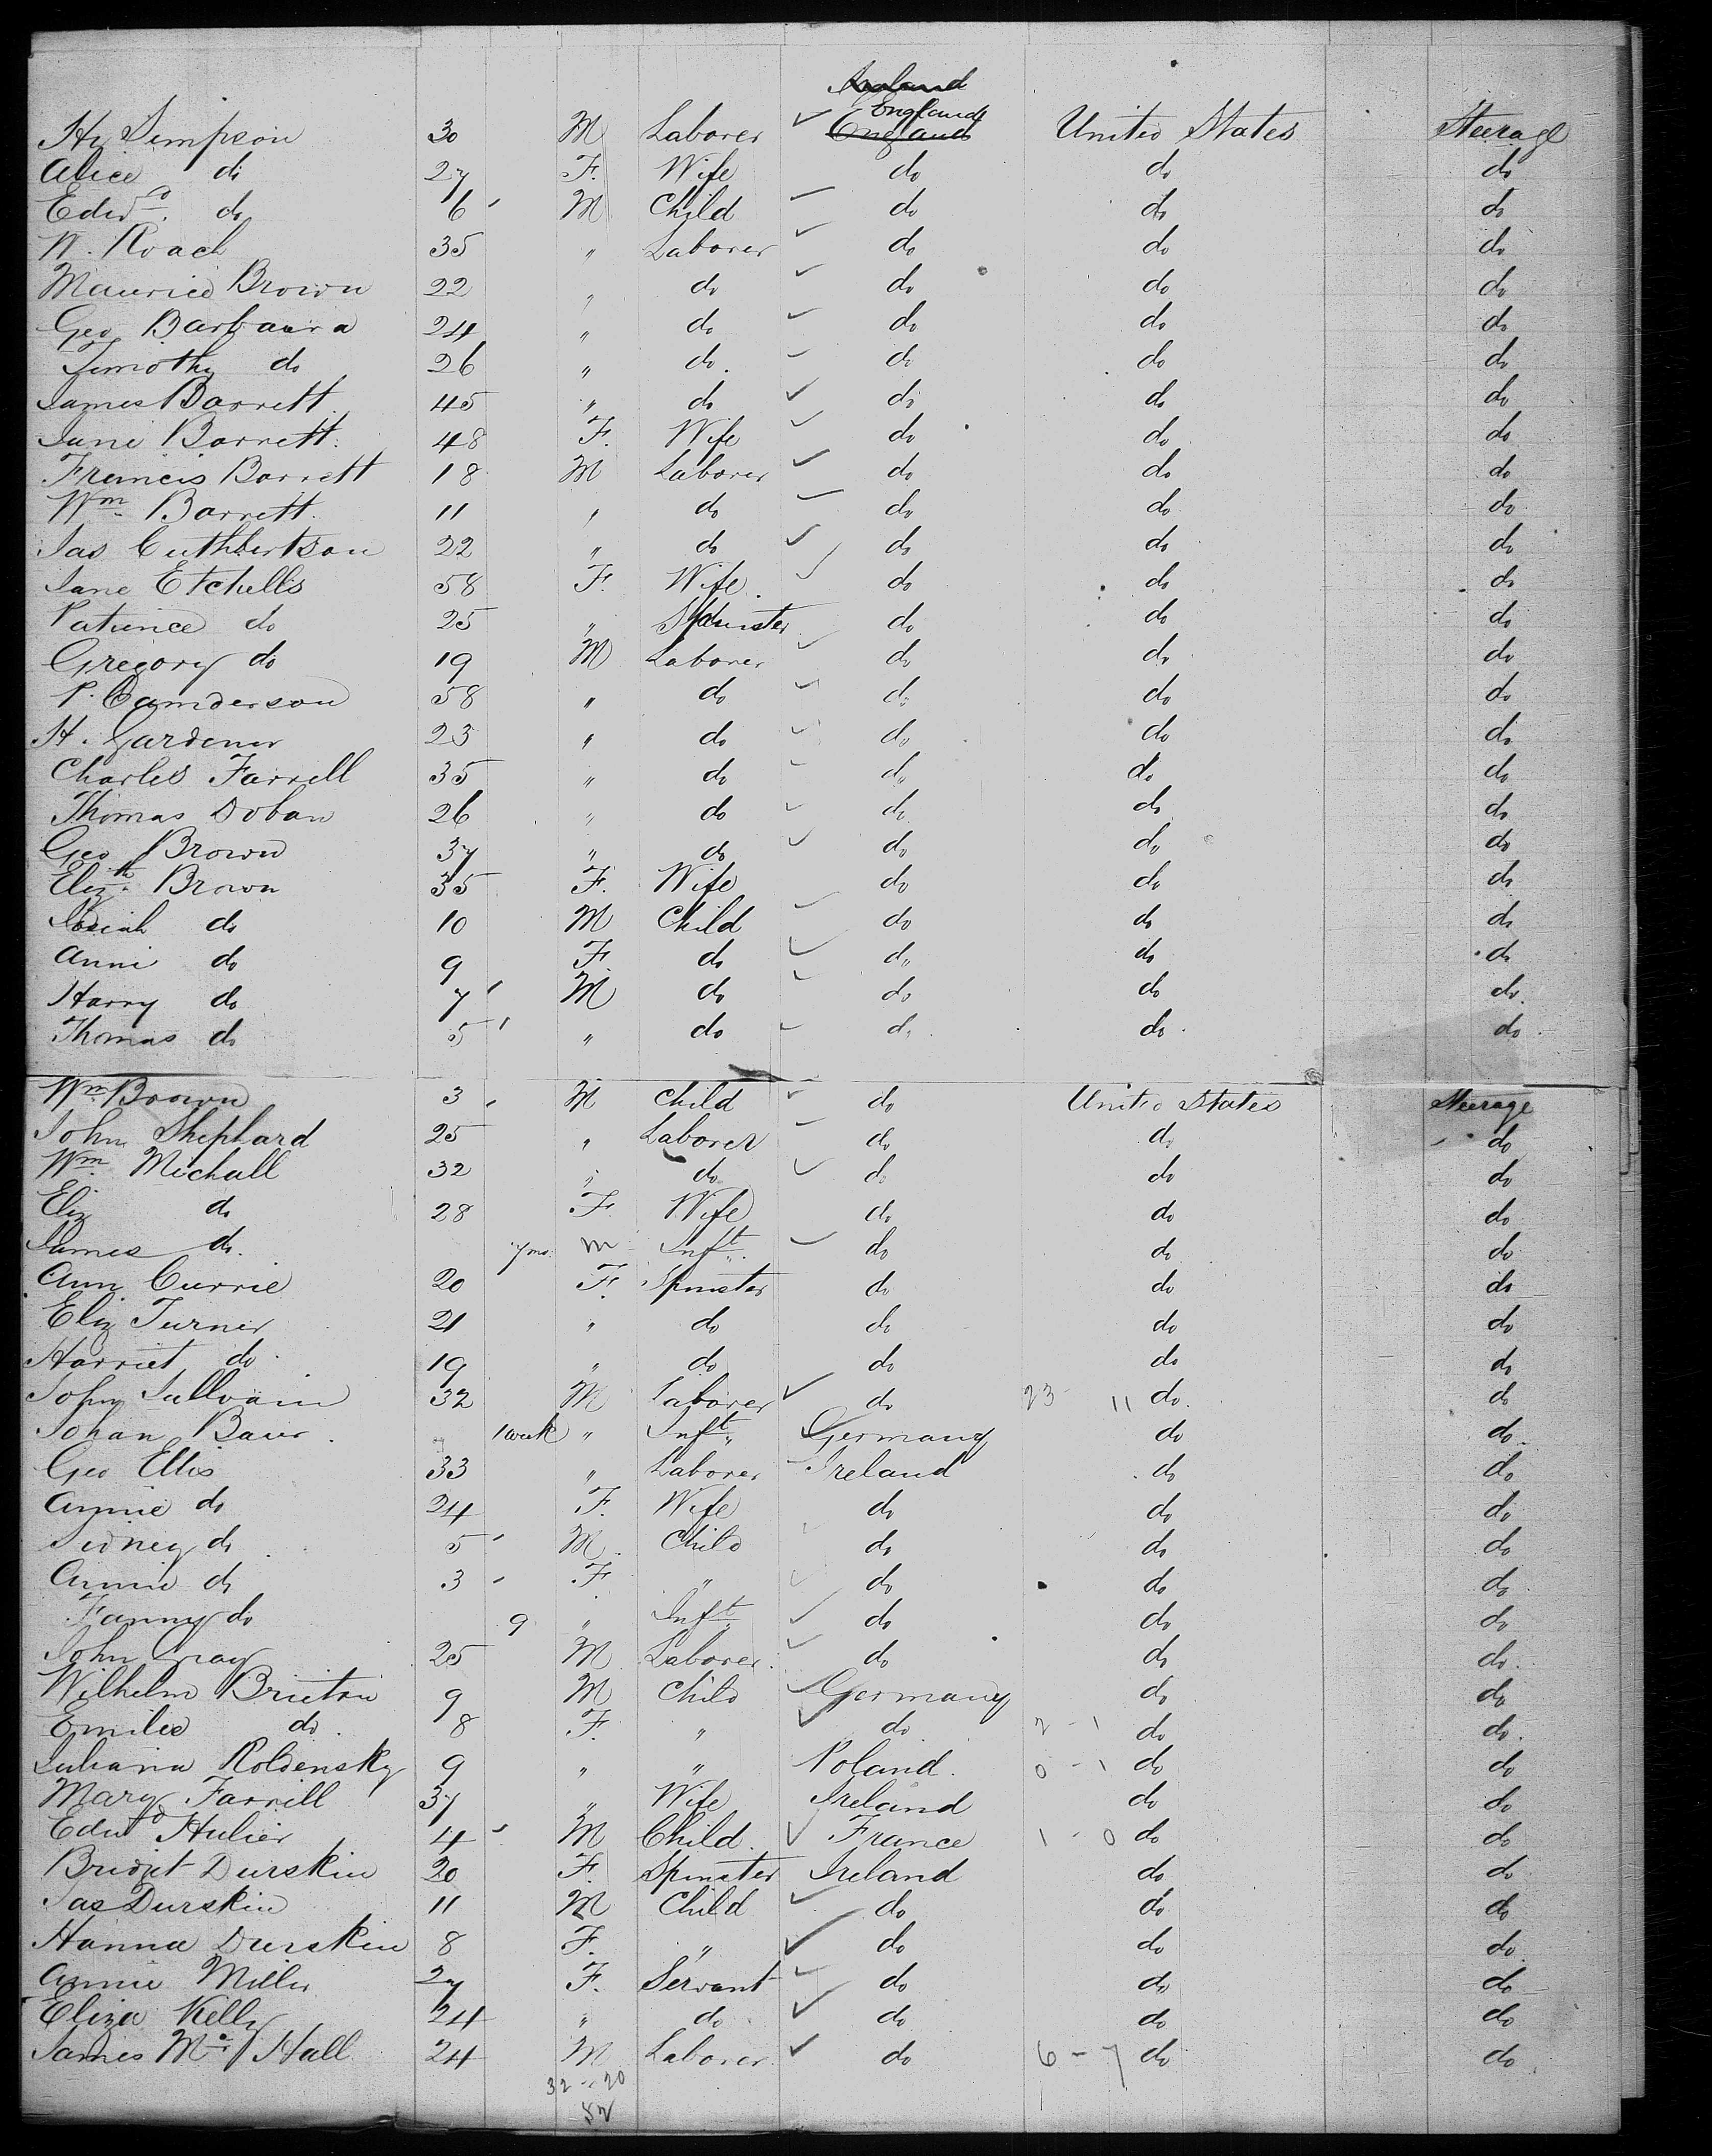 Ireland
England
Hy Simpson 30 M Laborer England United States Steerage
Alice do 27 F. Wife do do do
Edwd. do 6 M Child do do do
W. Roach 35 " Laborer do do do
Maurice Brown 22 " do do do do
Geo Barbaura 24 " do do do do
Timothy do 26 " do do do do
James Barrett 45 " do do do do
Jane Barrett. 48 F. Wife do do do
Francis Barrett 18 M Laborer do do do
Wm. Barrett. 11 " do do do do
Jas Cuthbertson 22 " do do do do
Jane Etchells 58 F. Wife do do do
Patience do 25 " Spinster do do do
Gregory do 19 M Laborer do do do
P. Camderson 58 " do do do do
H. Gardener 23 " do do do do
Charles Farrell 35 " do do do do
Thomas Doban 26 " do do do do
Geo Brown 37 " do do do do
Elizth. Brown 35 F. Wife do do do
Josiah do 10 M Child do do do
Anni do 9 F. do do do do
Harry do 7 M do do do do
Thomas do 5 " do do do do
Wm. Brown 3 M Child do United States Steerage
John Shephard 25 " Laborer do do do
Wm. Michall 32 " do do do do
Eliz do 28 F Wife do do do
James do. 7 mo. M Inft. do do do
Ann Currie 20 F. Spinster do do do
Eliz Turner 21 " do do do do
Harriet do 19 " do do do do
John Sullvain 32 M Laborer do 23 11 do do
Johan Baur 1 week " Inft. Germany do do
Geo Ellis 33 " Laborer Ireland do do
Annie do 24 F. Wife do do do
Sidney do 5 M Child do do do
Annie do 3 F " do do do
Fanny do 9 " Inft do do do
John Gray 25 M Laborer do do do
Wilhelm Brieton 9 M Child Germany do do
Emilie do 8 F. " do 2 - 1 do do
Juliana Roldensky 9 " " Poland. 0 - 1 do do
Mary Farrill 37 " Wife Ireland do do
Edwd Hulier 4 M Child. France 1 - 0 do do
Bridget Durskin 20 F. Spinster Ireland do do
Jas Durskin 11 M Child do do do
Hanna Durskin 8 F. " do do do
Annie Miller 27 F. Servant do do do
Eliza Kelly 24 " do do do do
James Mc Hall 24 M Laborer do 6 - 7 do do
32 - 20
52